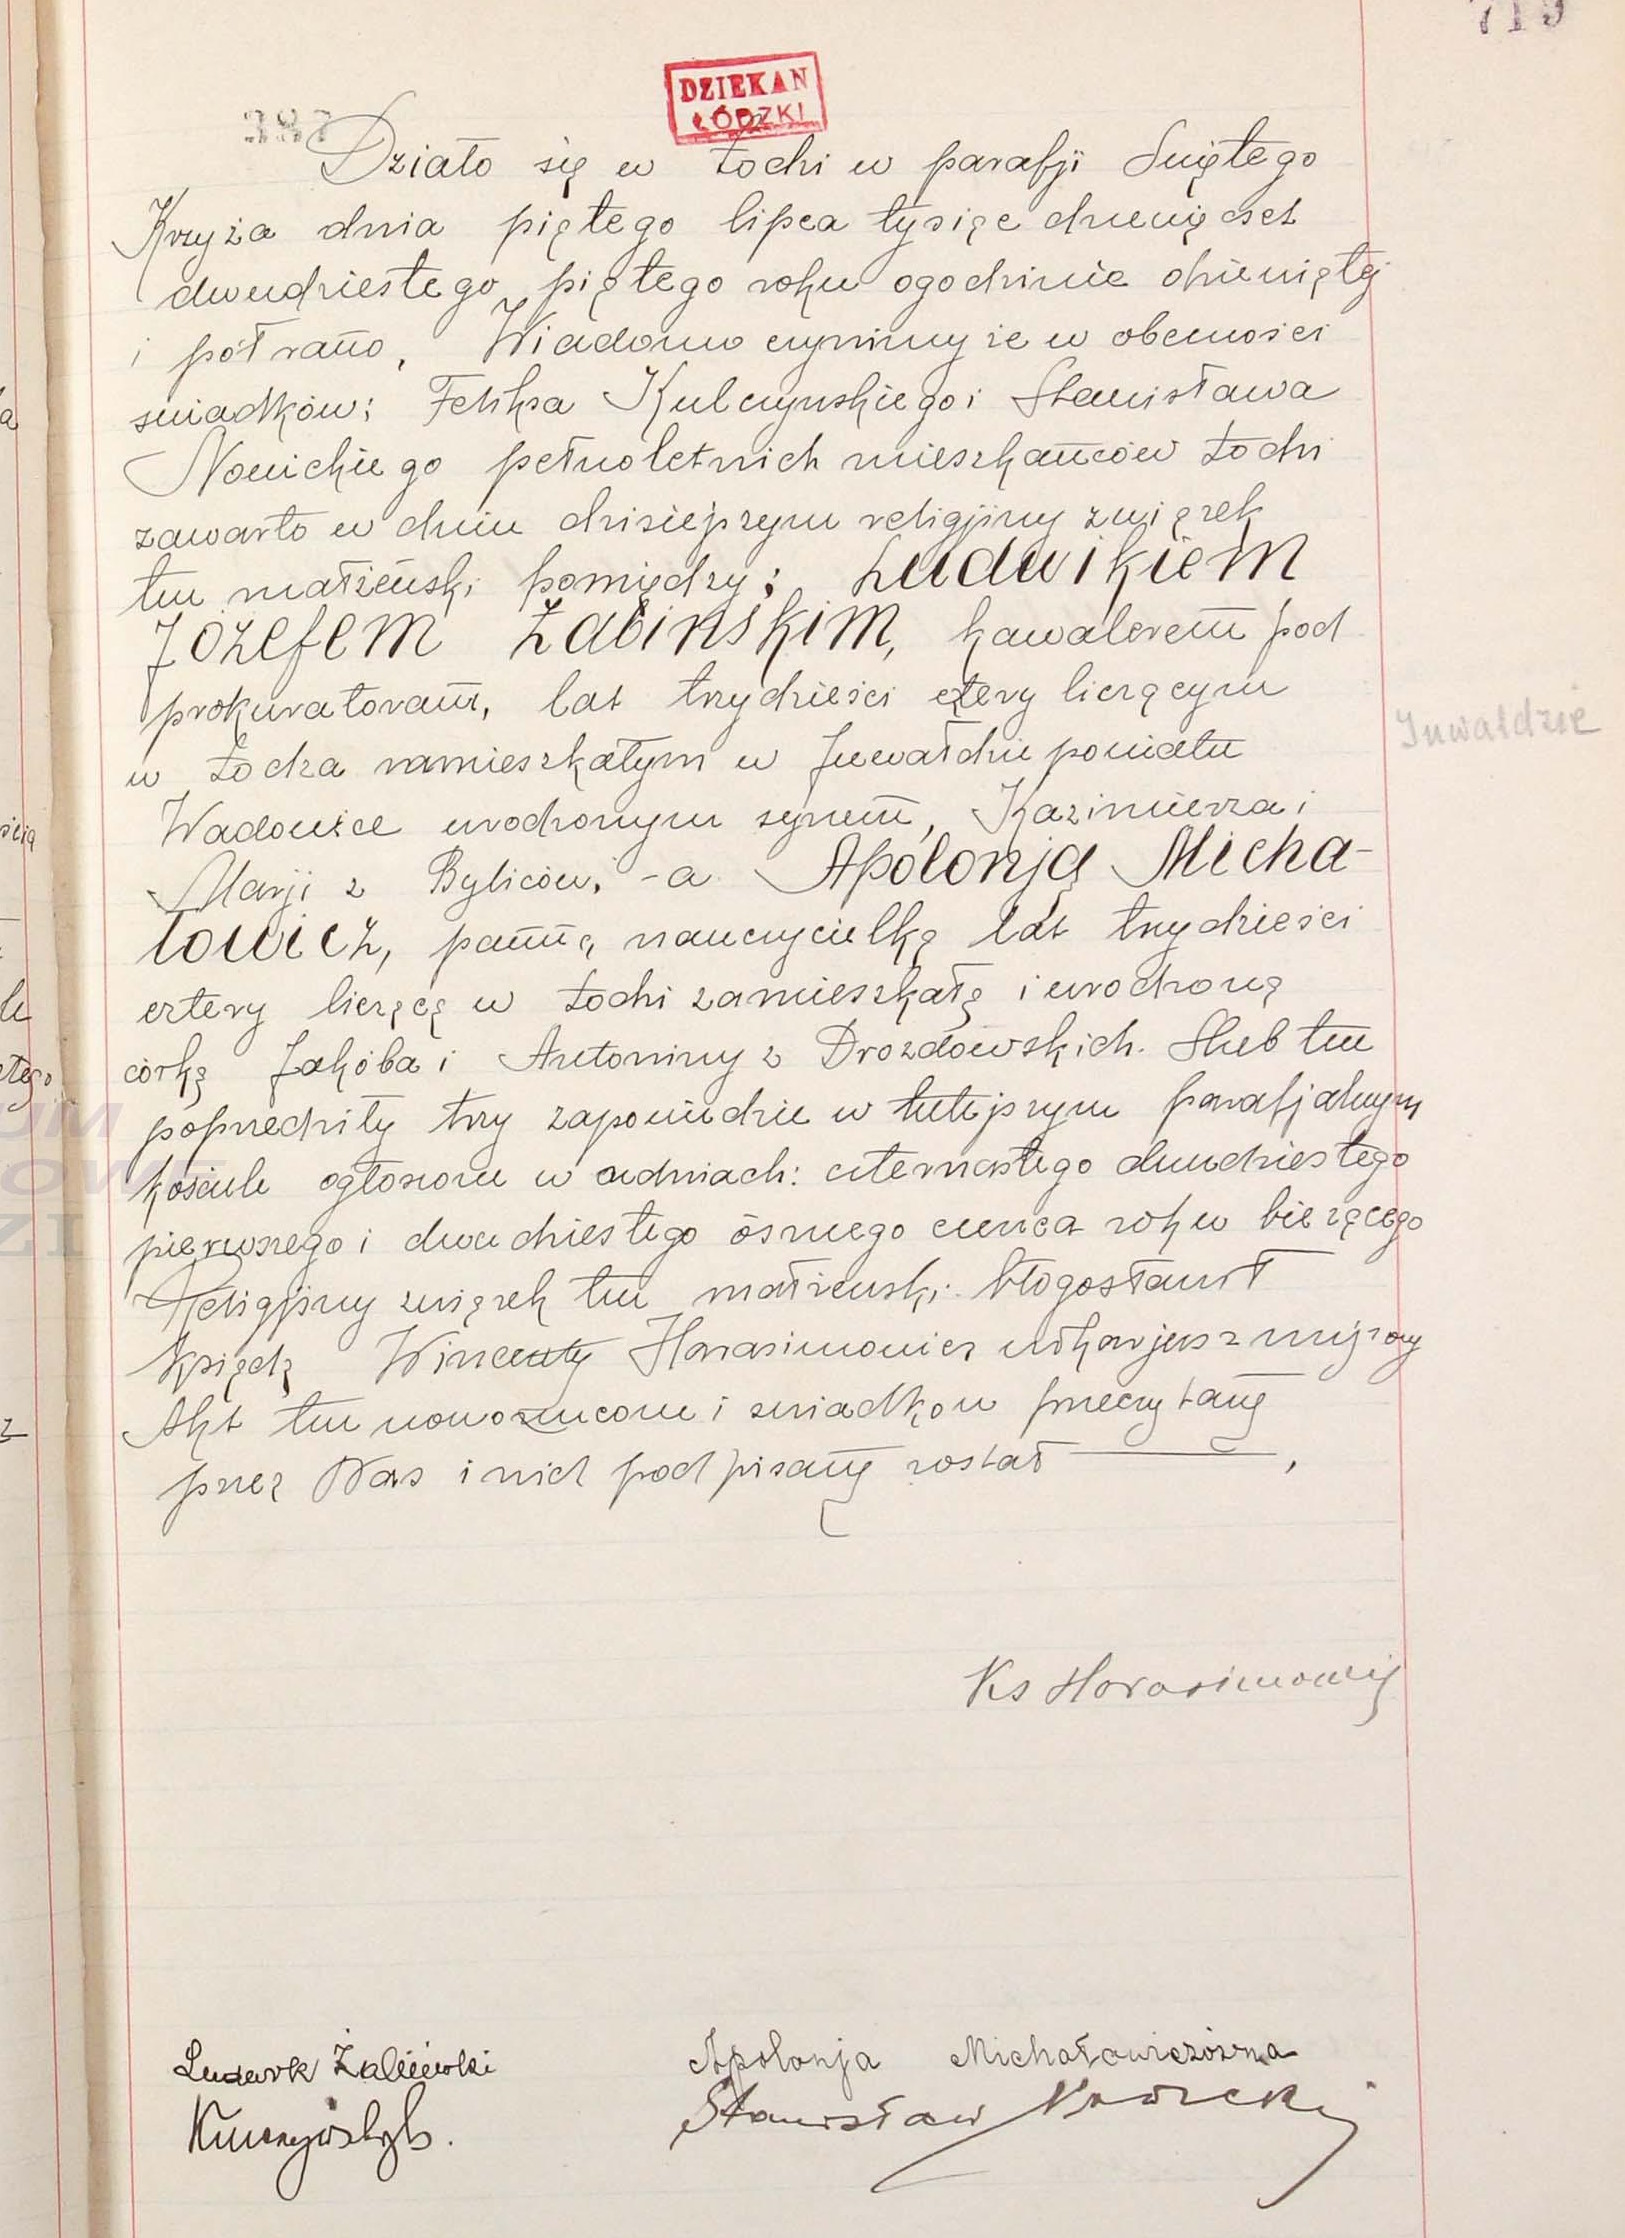 719
DZIEKAN
ŁÓDZKI
Działo się w Łodzi w parafji Świętego
Krzyża dnia piętego lipca tysięc dziewięcset
dwudziestego piętego roku o godzinie dziewiętej
i pół rano, Wiadomo czynimy że w obecności
swiadków: Feliksa Kulczynskiego i Stanisława
Nowickiego pełnoletnich mieszkańców Łodzi
zawarto w dniu dzisiejszym religijny zwięzek
ten małżeński pomiędzy: Ludwikiem
Józefem Żabinskim, kawalerem pod
prokuratoram, lat trzydzieści cztery liczęcym
w Łodza zamieszkałym w Juwałdzie powiatu
Wadowice urodzonym synem, Kazimierza i
Marji z Byliców, -a Apolonją Micha-
łowicz, pannę, nauczycielkę lat trzydzieści
cztery liczęcę w Łodzi zamieszkałę i urodzonę
córkę Jakóba i Antoniny z Drozdowskich. Slub ten
poprzedziły trzy zapowiedzie w tutejszym parafjalnym
kościele ogłoszone w dniach: czternastego dwudziestego
pierwszego i dwudziestego ósmego czerwca roku bieżęcego
Religijny zwięzek ten małżenski błogosławił
Księdz Wincenty Harasimowicz wikarjusz miejscowy
Akt ten nowożencom i swiadkom przeczytany
przez Nas i nich podpisany został
Juwałdzie
Ks Harasimowicz
Ludwik Żabiński
Apolonja Michałowiczówna
Stanisław Nowicki